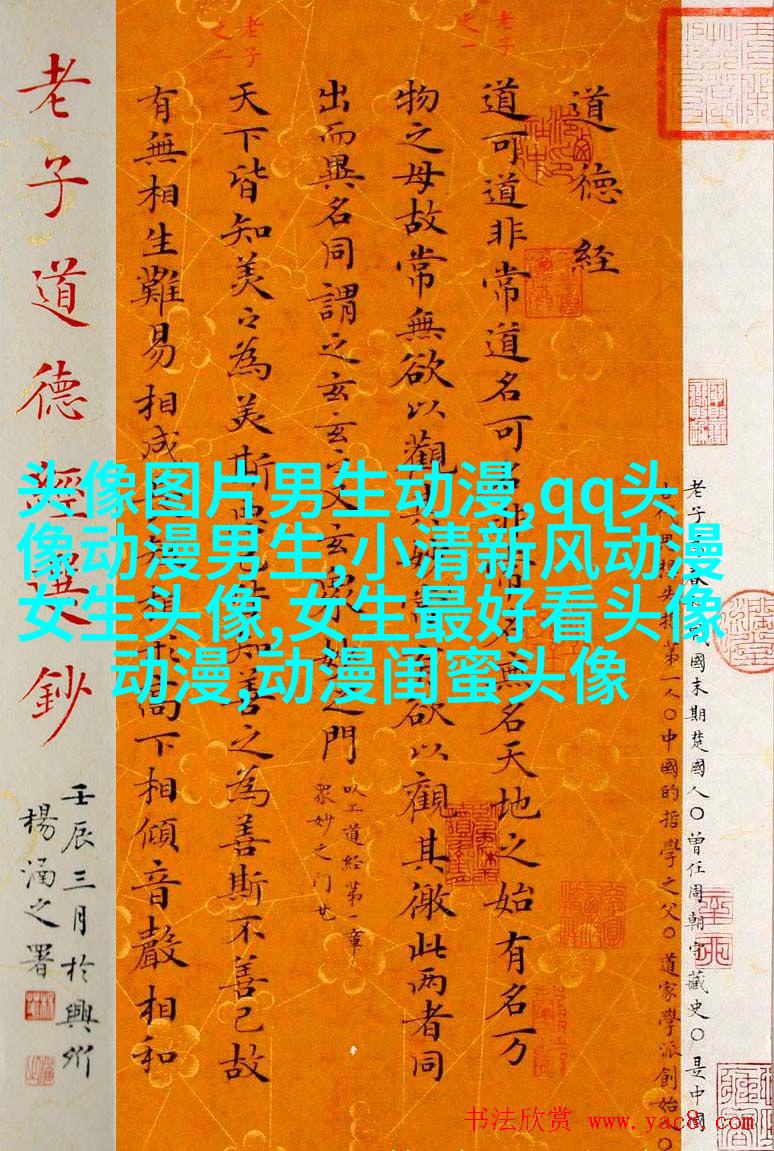 头像图片男生动漫,qq头
像动漫男生,小清新风动漫
女生头像,女生最好看头像
动漫,动漫闺蜜头像
老子春戰國末期楚國人〇曾任周朝守藏史〇是中國
古代思想先指第一人〇中國的哲學之父〇道家學派創始〇
道德経
老子
之一
道可道非常道名可名非常名無名天地之始有名万
物之母故常無欲以觀其妙常有欲以觀其徼此两者同
出而異名同謂之玄玄之又玄衆妙之門
以上道经第一章
老子
之二
天下皆知美々為美斯惡已皆知善之為善斯不善已故
有無相生難易相成長短相形高下相傾音聲相和
老子道德經選鈔
壬辰三月於興州
楊涵之署
书法欣赏 www.yac8.com